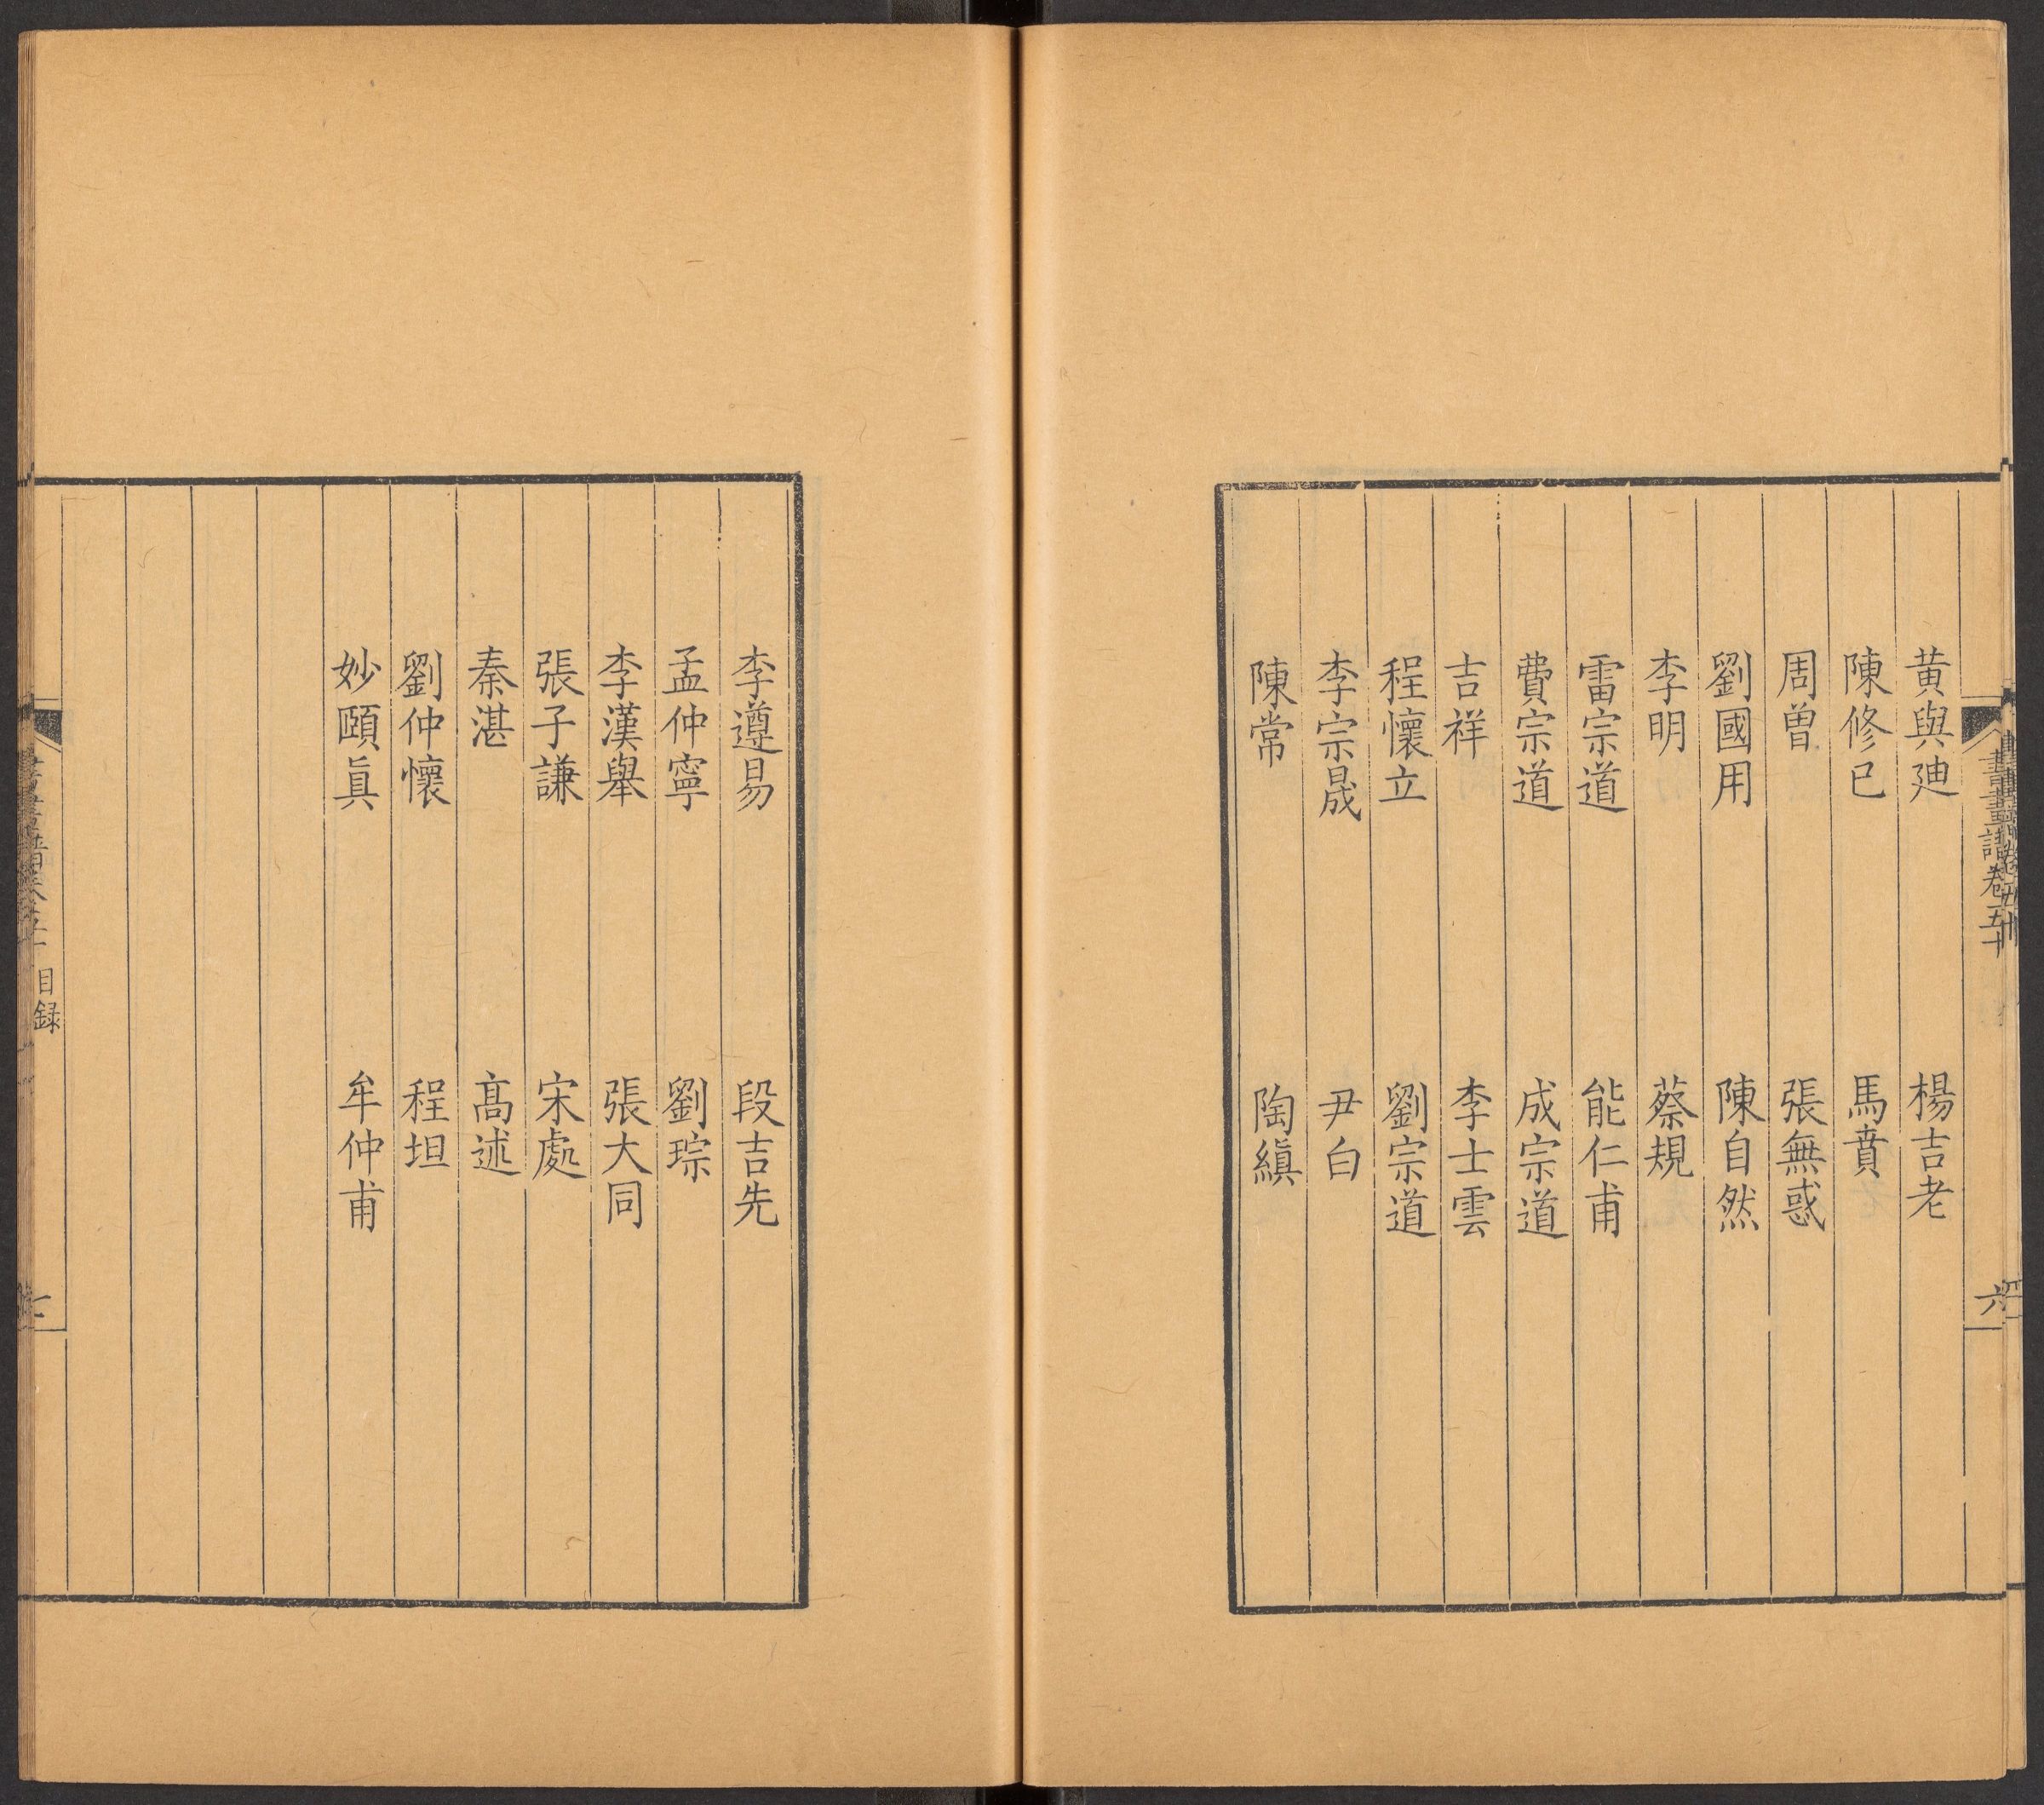 黄與迪 楊吉老
陳修已 馬賁
周曽 張無惑
劉國用 陳自然
李明 蔡規
雷宗道 能仁甫
費宗道 成宗道
吉祥 李士雲
程懷立 劉宗道
李宗晟 尹白
陳常 陶縝
六
李遵易 段吉先
孟仲寧 劉琮
李漢舉 張大同
張子謙 宋處
秦湛 髙述
劉仲懷 程坦
妙頤眞 牟仲甫
目録